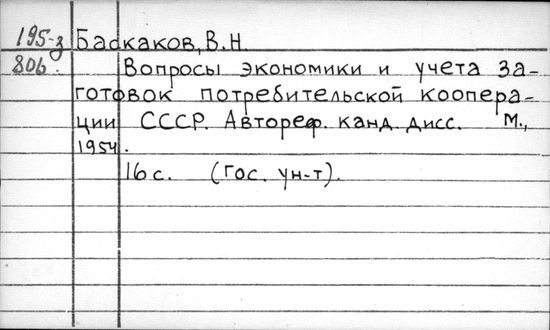 195-з Баскаков, В.Н.
806. Вопросы экономики и учета за-
готовок потребительской коопера-
ции СССР. Автореф. канд. дисс. М.,
1954.
16 с. (Гос. ун-т).